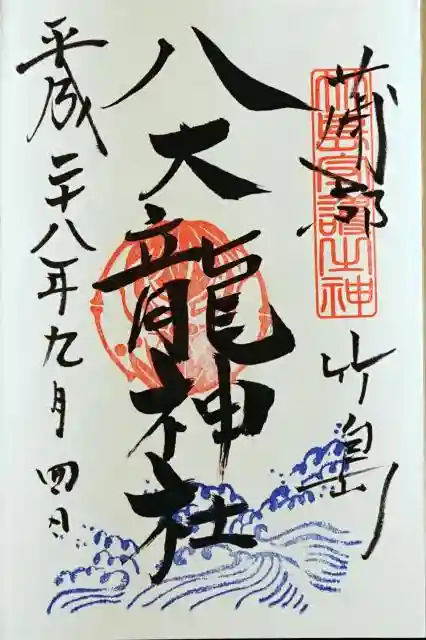 蒲郡 竹島
八大龍神社
平成二十八年九月四日